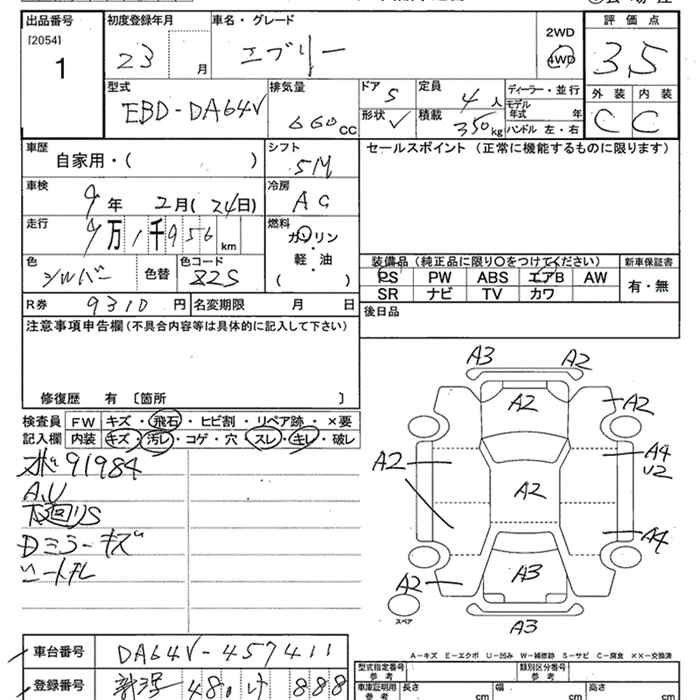 出品番号 初度登録年月 車名・グレード 評価点
[2054] 1 23 月 エブリー 2WD 4WD 3.5
型式 EBD-DA64V 排気量 660 CC ドア 5 定員 4 人 ディーラー・並行 外装 内装
形状 V 積載 350 kg モデル年式 年 ハンドル 左・右 C C
車歴 自家用・( ) シフト 5M セールスポイント (正常に機能するものに限ります)
車検 年 2月(24日) 冷房 AC
走行 万1千956 km 燃料 ガソリン・軽・油 ( )
装備品(純正品に限り○をつけてください) 新車保証書
色 シルバー 色替 色コード Z2S PS PW ABS エアB AW 有・無
SR ナビ TV カワ
R券 9310 円 名変期限 月 日 後日品
注意事項申告欄(不具合内容等は具体的に記入して下さい)
修復歴 有 〔箇所 〕
検査員 FW キズ・飛石・ヒビ割・リペア跡・×要
記入欄 内装 キズ・汚レ・コゲ・穴・スレ・キレ・破レ
91984
A.U
下廻りS
Dミラーキズ
シートキレ
A3 A2
A2 A2
A2 A2 A4
U2
A4
A2 A3
スペア
A3
A-キズ E-エクボ U-凹み W-補修跡 S-サビ C-腐食 XX-交換済
車台番号 DA64V-457411
登録番号 48 け 888
型式指定番号 参考 類別区分番号 参考
車庫証明用 参考 長さ cm 幅 cm 高さ cm